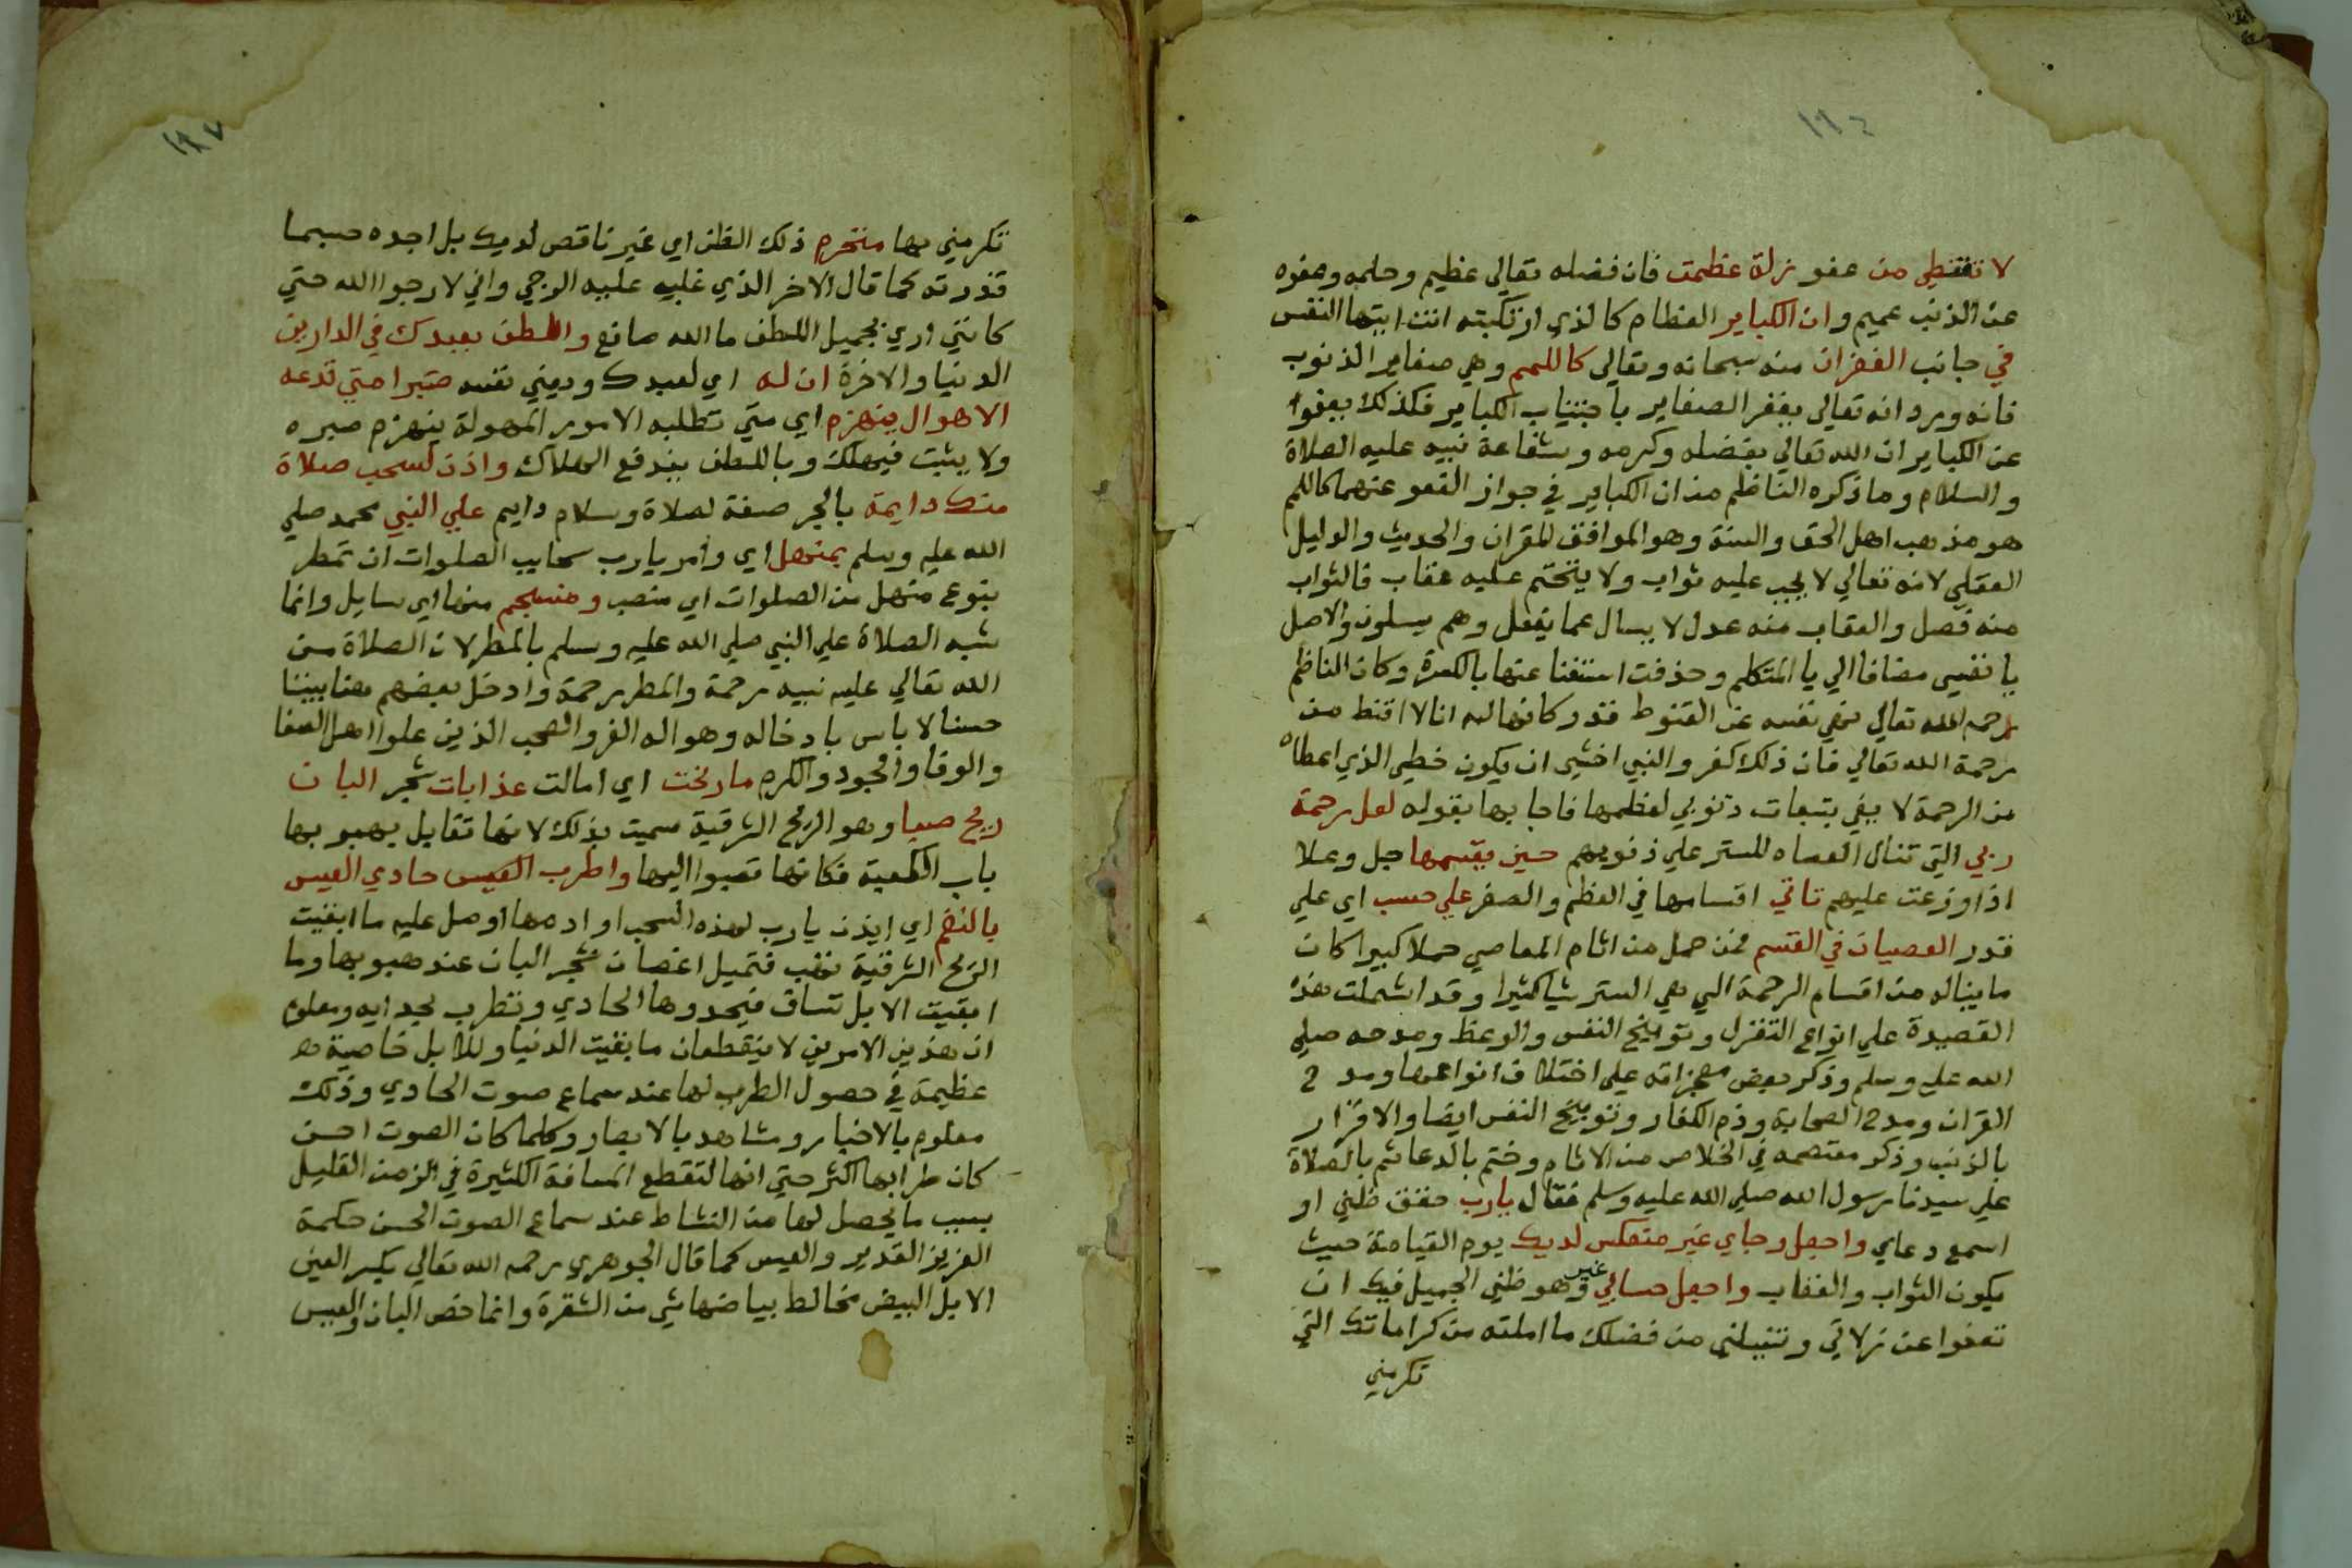 ١٩٤
لا تقنطي من عفو زلة عظمت فان فضله تعالي عظيم وحلمه وعفوه
عن الذنب عميم وان الكباير العظام كالذي ارتكبته انت ايتها النفس
في جانب الغفران منه سبحانه وتعالي كاللمم وهي صغاير الذنوب
فانه ورد انه تعالي يغفر الصغاير باجتناب الكباير فكذلك يعفوا
عن الكباير ان الله تعالي بفضله وكرمه وبشفاعة نبيه عليه الصلاة
والسلام وما ذكره الناظم من ان الكباير في جواز العفو عنهما كاللمم
هو مذهب اهل الحق والسنة وهو الموافق للقران والحديث والدليل
العقلي لانه تعالي لا يجب عليه ثواب ولا يتحتم عليه عقاب فالثواب
منه فضل والعقاب منه عدل لا يسال عما يفعل وهم يسلون والاصل
يا نفسي مضافا الي يا المتكلم وحذفت استغنا عنها بالكسرة وكان الناظم
رحمه الله تعالي نهي نفسه عن القنوط فقدر كانها له انا لا اقنط من
رحمة الله تعالي فان ذلك كفر والنبي اخشي ان يكون خطي الذي اعطاه
من الرحمة لا يفي بتبعات ذنوبي لعظمها فاجابها بقوله لعل رحمة
ربي التي تنال العصاه للستر علي ذنوبهم حين يقسمها جل وعلا
اذا وزعت عليهم تاتي اقسامها في العظم والصغر علي حسب اي علي
قدر العصيان في القسم فمن حمل من اثام المعاصي حملا كبيرا كان
ما يناله من اقسام الرحمة التي هي الستر شيا كثيرا وقد اشملت هذه
القصيدة علي انواع التغزل وتوبيخ النفس والوعظ ومدحه صلي
الله عليه وسلم وذكر بعض معجزاته علي اختلاف انواعها ومدح
القران ومدح الصحابة وذم الكفار وتوبيخ النفس ايضا والاقرار
بالذنب وذكر معتصمه في الخلاص من الاثام وختم بالدعا ثم بالصلاة
علي سيدنا رسول الله صلي الله عليه وسلم فقال يارب حقق ظني او
اسمع دعاي واجعل رجاي غير منعكس لديك يوم القيامة حيث
يكون الثواب والعقاب واجعل حسابي غير وهو ظني الجميل فيك ان
تعفوا عن زلاتي وتنيلني من فضلك ما املته من كراماتك التي
تكرمني
١٩٧
تكرمني بها منخرم ذلك الظن اي غير ناقص لديك بل اجده حسبما
قدرته كما قال الاخر الذي غلبه عليه الوجي واني لارجوا الله حتي
كانني اري بجميل اللطف ما الله صانع والطف بعبدك في الدارين
الدنيا والاخرة ان له اي لعبدك ويعني نفسه صبرا متي تدعه
الاهوال ينهزم اي متي تطلبه الامور المهولة ينهزم صبره
ولا يثبت فيهلك وباللطف يندفع الهلاك واذن لسحب صلاة
منك دايمة بالجر صفة لصلاة وسلام دايم علي النبي محمد صلي
الله عليه وسلم بمنهل اي وامر يارب سحايب الصلوات ان تمطر
بنوع منهل من الصلوات اي منصب ومنسجم منها اي سايل وانما
شبه الصلاة علي النبي صلي الله عليه وسلم بالمطر لان الصلاة من
الله تعالي عليه نبيه رحمة والمطر رحمة وادخل بعضهم هنا بيتا
حسنا لا باس بادخاله وهو اله الغر والصحب الذين علوا اهل الصفا
والوفا والجود والكرم ما رنحت اي امالت عذابات شجر البان
ريح صبا وهو الريح الشرقية سميت بذلك لانها تقابل بهبوبها
باب الكعبة فكانها تصبوا اليها واطرب العيس حادي العيس
بالنغم اي ايذن يارب لهذه السحب او ادمها اوصل عليه ما ابقيت
الريح الشرقية تهب فتميل اغصان شجر البان عند هبوبها وما
ابقيت الابل تساق فيحدوها الحادي وتطرب لحدايه ومعلوم
ان هذين الامرين لا ينقطعان ما بقيت الدنيا وللابل خاصية
عظيمة في حصول الطرب لها عند سماع صوت الحادي وذلك
معلوم بالاخبار ومشاهد بالابصار وكلما كان الصوت احسن
كان طرابها اكثر حتي انها لتقطع المسافة الكثيرة في الزمن القليل
بسبب ما يحصل لها من النشاط عند سماع الصوت الحسن حكمة
العزيز القدير والعيس كما قال الجوهري رحمه الله تعالي بكسر العين
الابل البيض يخالط بياضها شي من الشقرة وانما خص البان والعيس